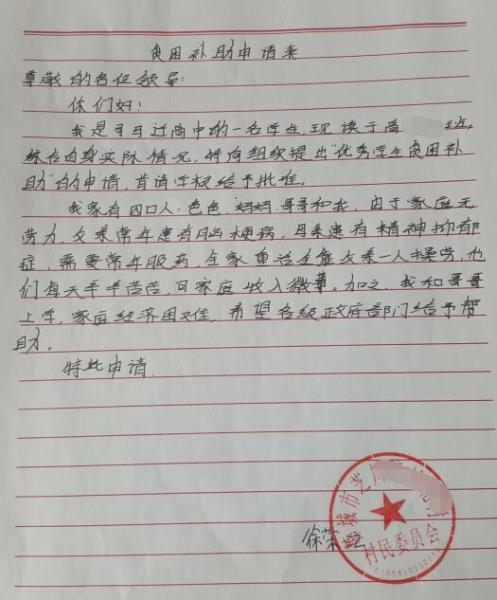 贫困补助申请表
尊敬的各位领导:
你们好!
我是 中的一名学生,现读于高 班,
综合自身实际情况,特向组织提出"优秀学生贫困补
助"的申请,肯请学校给予批准。
我家有四口人:爸爸、妈妈、哥哥和我,由于家庭无
劳力,父亲常年患有脑梗病,母亲患有精神抑郁
症,需要常年服药,全家重活全靠父亲一人操劳,他
们每天辛辛苦苦,可家庭收入微薄。加之,我和哥哥
上学,家庭经济困难,希望各级政府部门给予帮
助。
特此申请
城市芝
村民委员会
徐